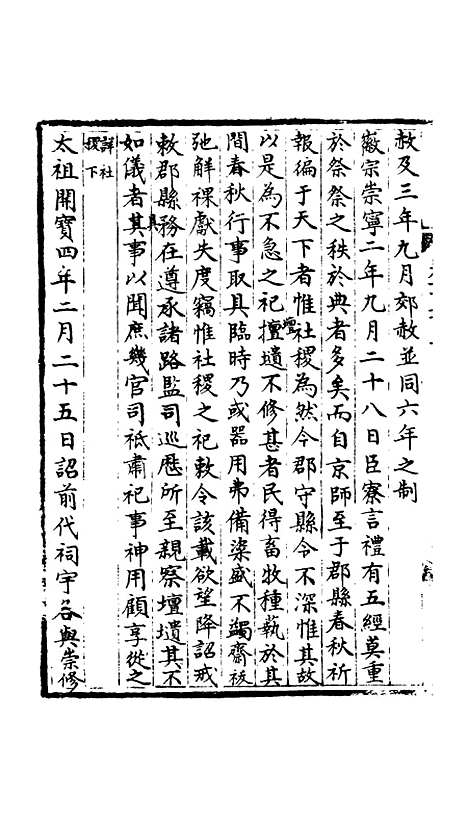 赦及三年九月郊赦並同六年之制
徽宗崇寧二年九月二十八日臣寮言禮有五經莫重
於祭祭之秩於典者多矣而自京師至于郡縣春秋祈
報徧于天下者惟社稷為然今郡守縣令不深惟其故
以是為不急之祀擅壝不修甚者民得畜牧種蓺於其
壇
間春秋行事取具臨時乃或器用弗備粢盛不蠲齋祓
弛觧祼獻失度竊惟社稷之祀敕令該載欲望降詔戒
敕郡縣務在遵承諸路監司巡歷所至親察壇壝其不
如儀者其事以聞庶幾官司祗肅祀事神用顧享從之
具
詳社
稷下
太祖開寶四年二月二十五日詔前代祠宇各與崇修